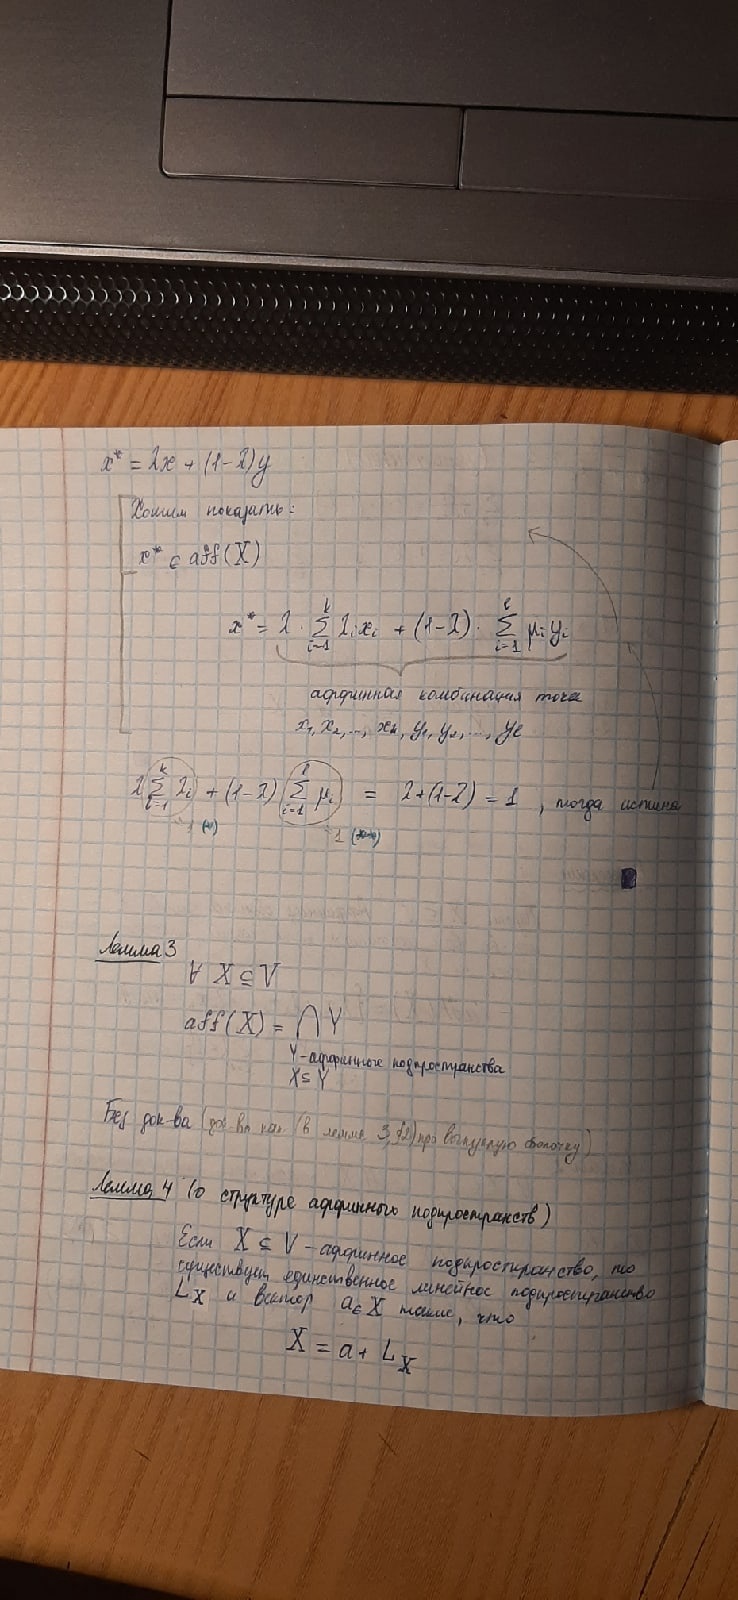 x* = λx + (1-λ)y
Хотим показать:
x* ∈ aff(X)
x* = λ · ∑_{i=1}^{k} λᵢxᵢ + (1-λ) · ∑_{i=1}^{l} μᵢyᵢ
аффинная комбинация точек
x₁, x₂, ..., xₖ, y₁, y₂, ..., yₗ
λ ∑_{i=1}^{k} λᵢ + (1-λ) ∑_{i=1}^{l} μᵢ = λ + (1-λ) = 1 , тогда истина
=1 (*) =1 (**)
Лемма 3
∀ X ⊆ V
aff(X) = ⋂ Y
Y - аффинные подпространства
X ⊆ Y
Без док-ва (док-во как в лемме 3, §2) про выпуклую оболочку)
Лемма 4 (о структуре аффинного подпространств)
Если X ⊆ V - аффинное подпространство, то
существует единственное линейное подпространство
L_X и вектор a ∈ X такие, что
X = a + L_X